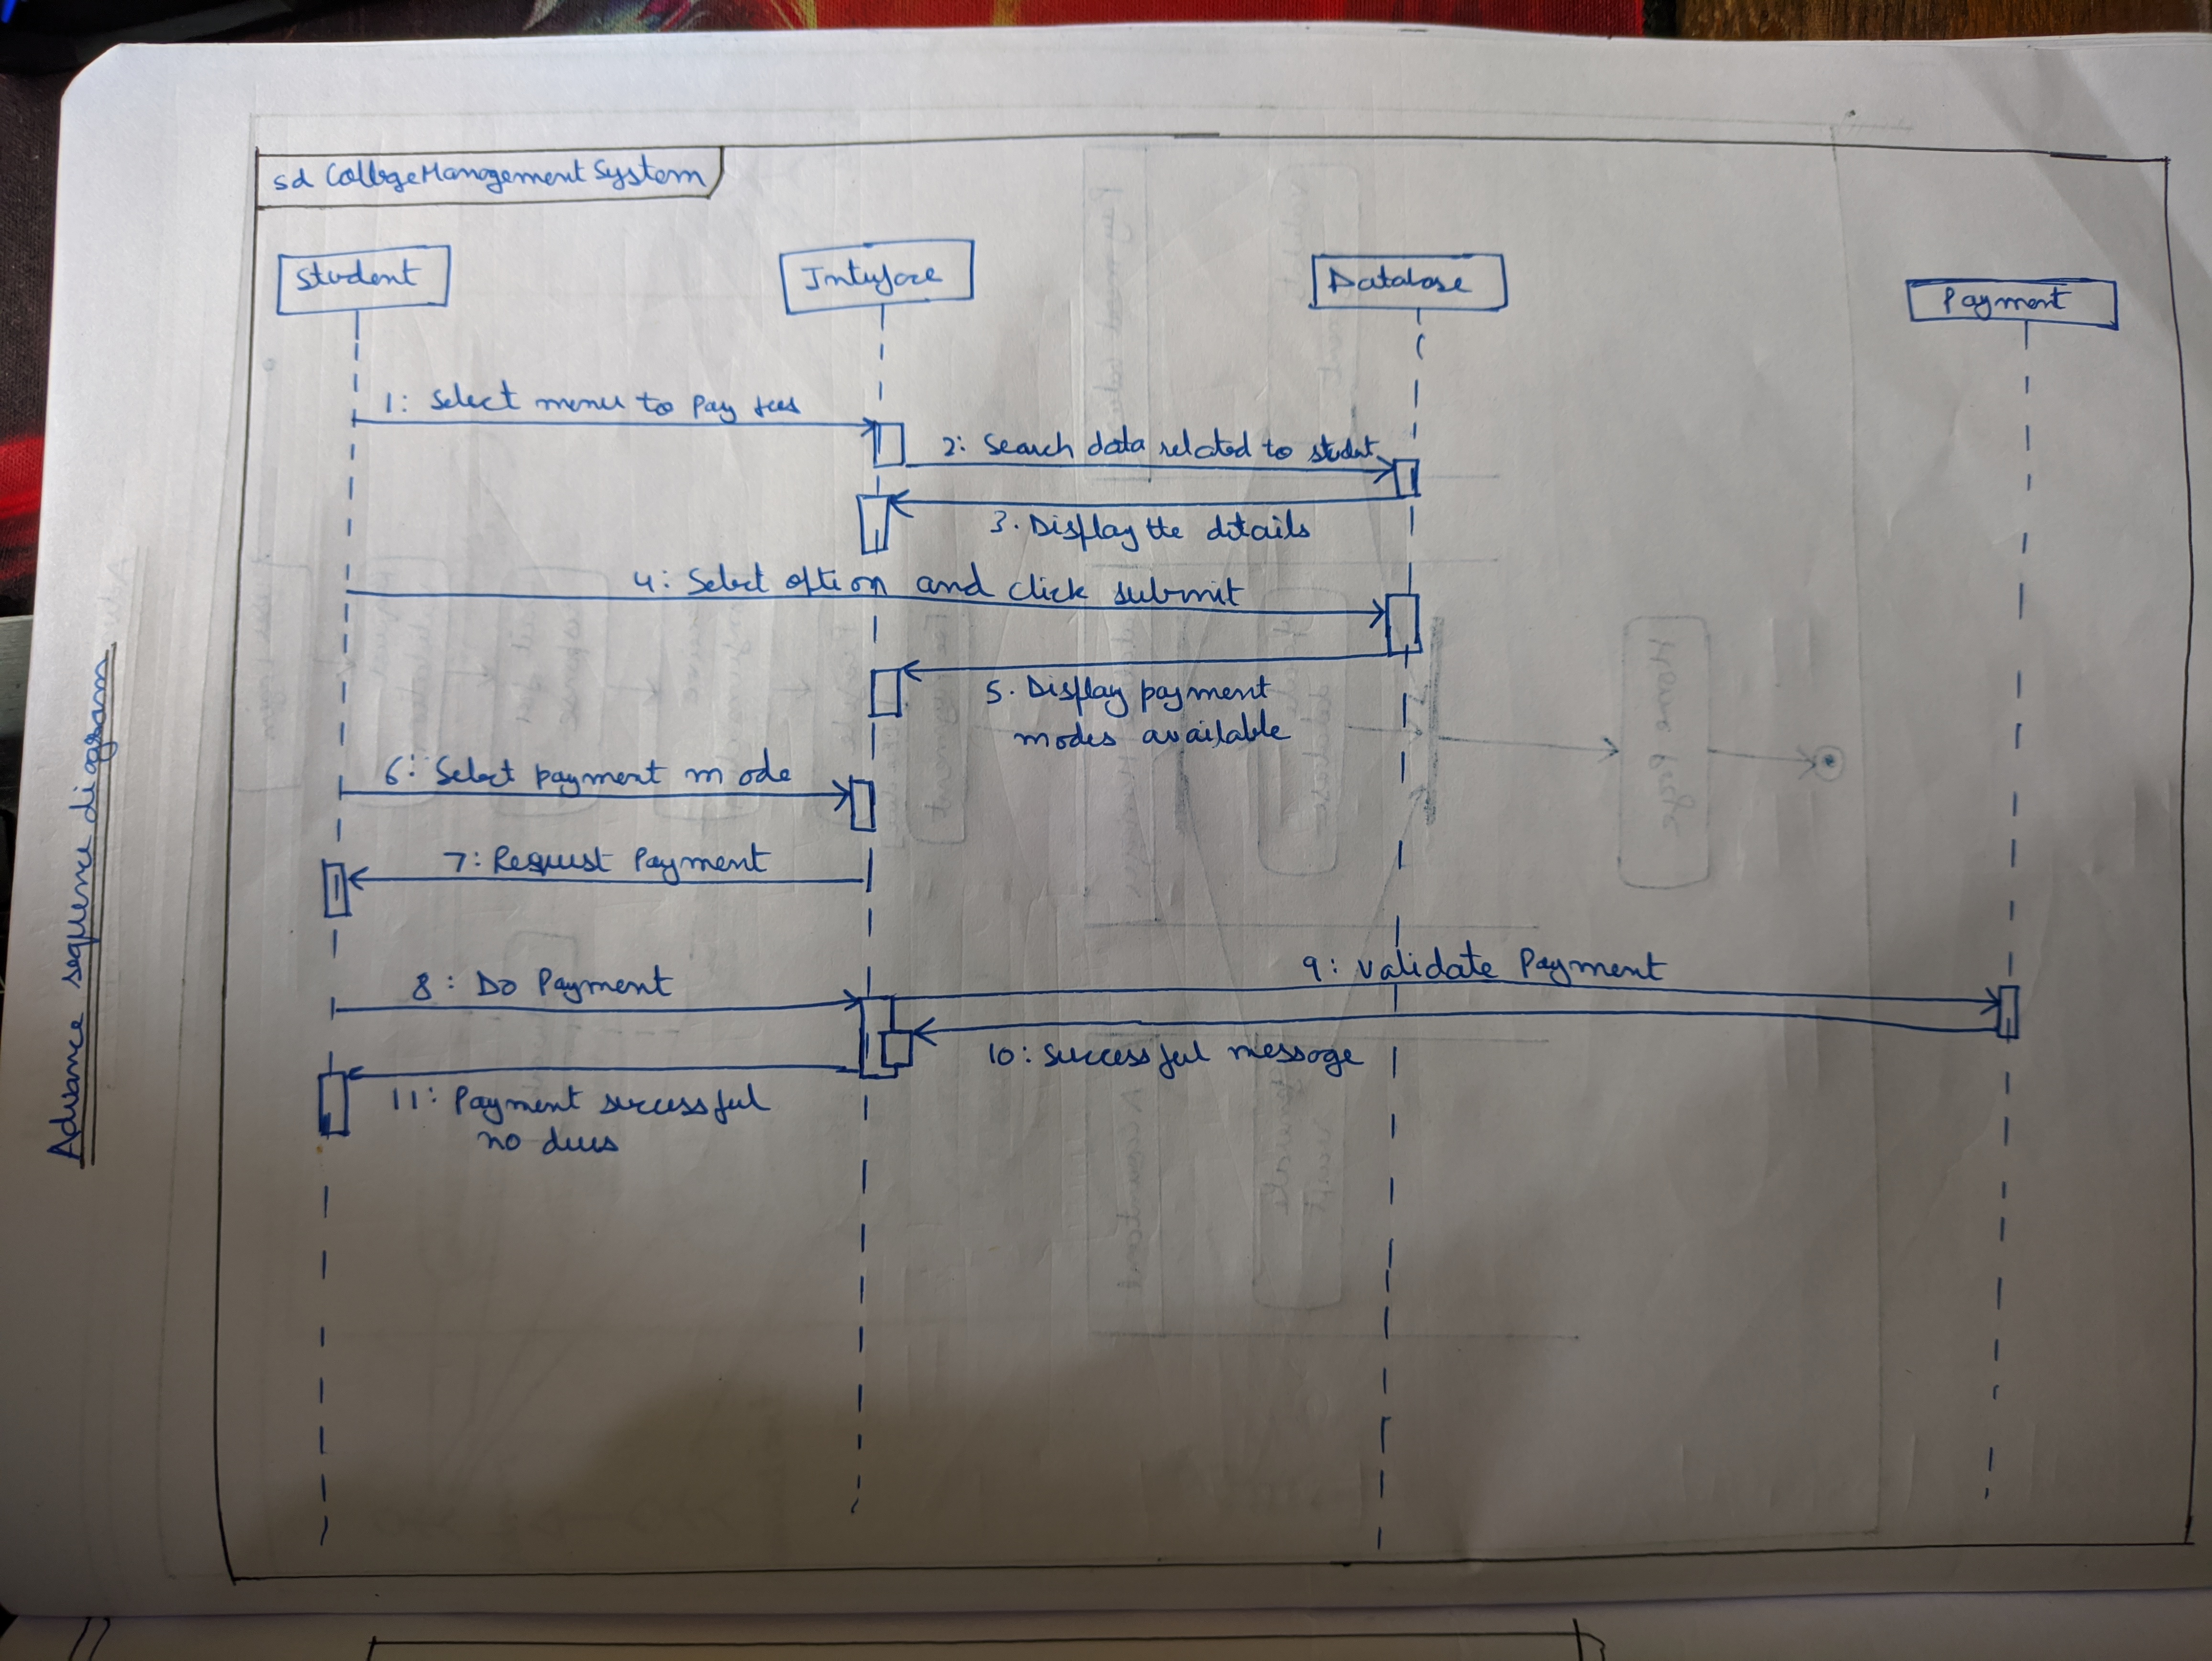 sd CollegeManagementSystem
Student
Interface
Database
Payment
1: Select menu to Pay fees
2: Search data related to student
3. Display the details
4: Select option and click submit
5. Display payment
modes available
6: Select payment mode
7: Request Payment
8: Do Payment
9: Validate Payment
10: Successful message
11: Payment successful
no dues
Advance sequence diagram